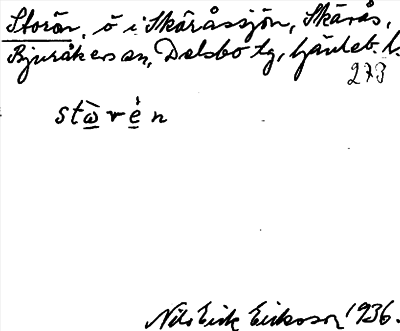 Storön, ö i Skåråssjön, Skårås,
Bjuråkers sn, Delsbo tg, Gävleb. l.
273
stὼrė̀n
Nils Erik Eriksson 1936.